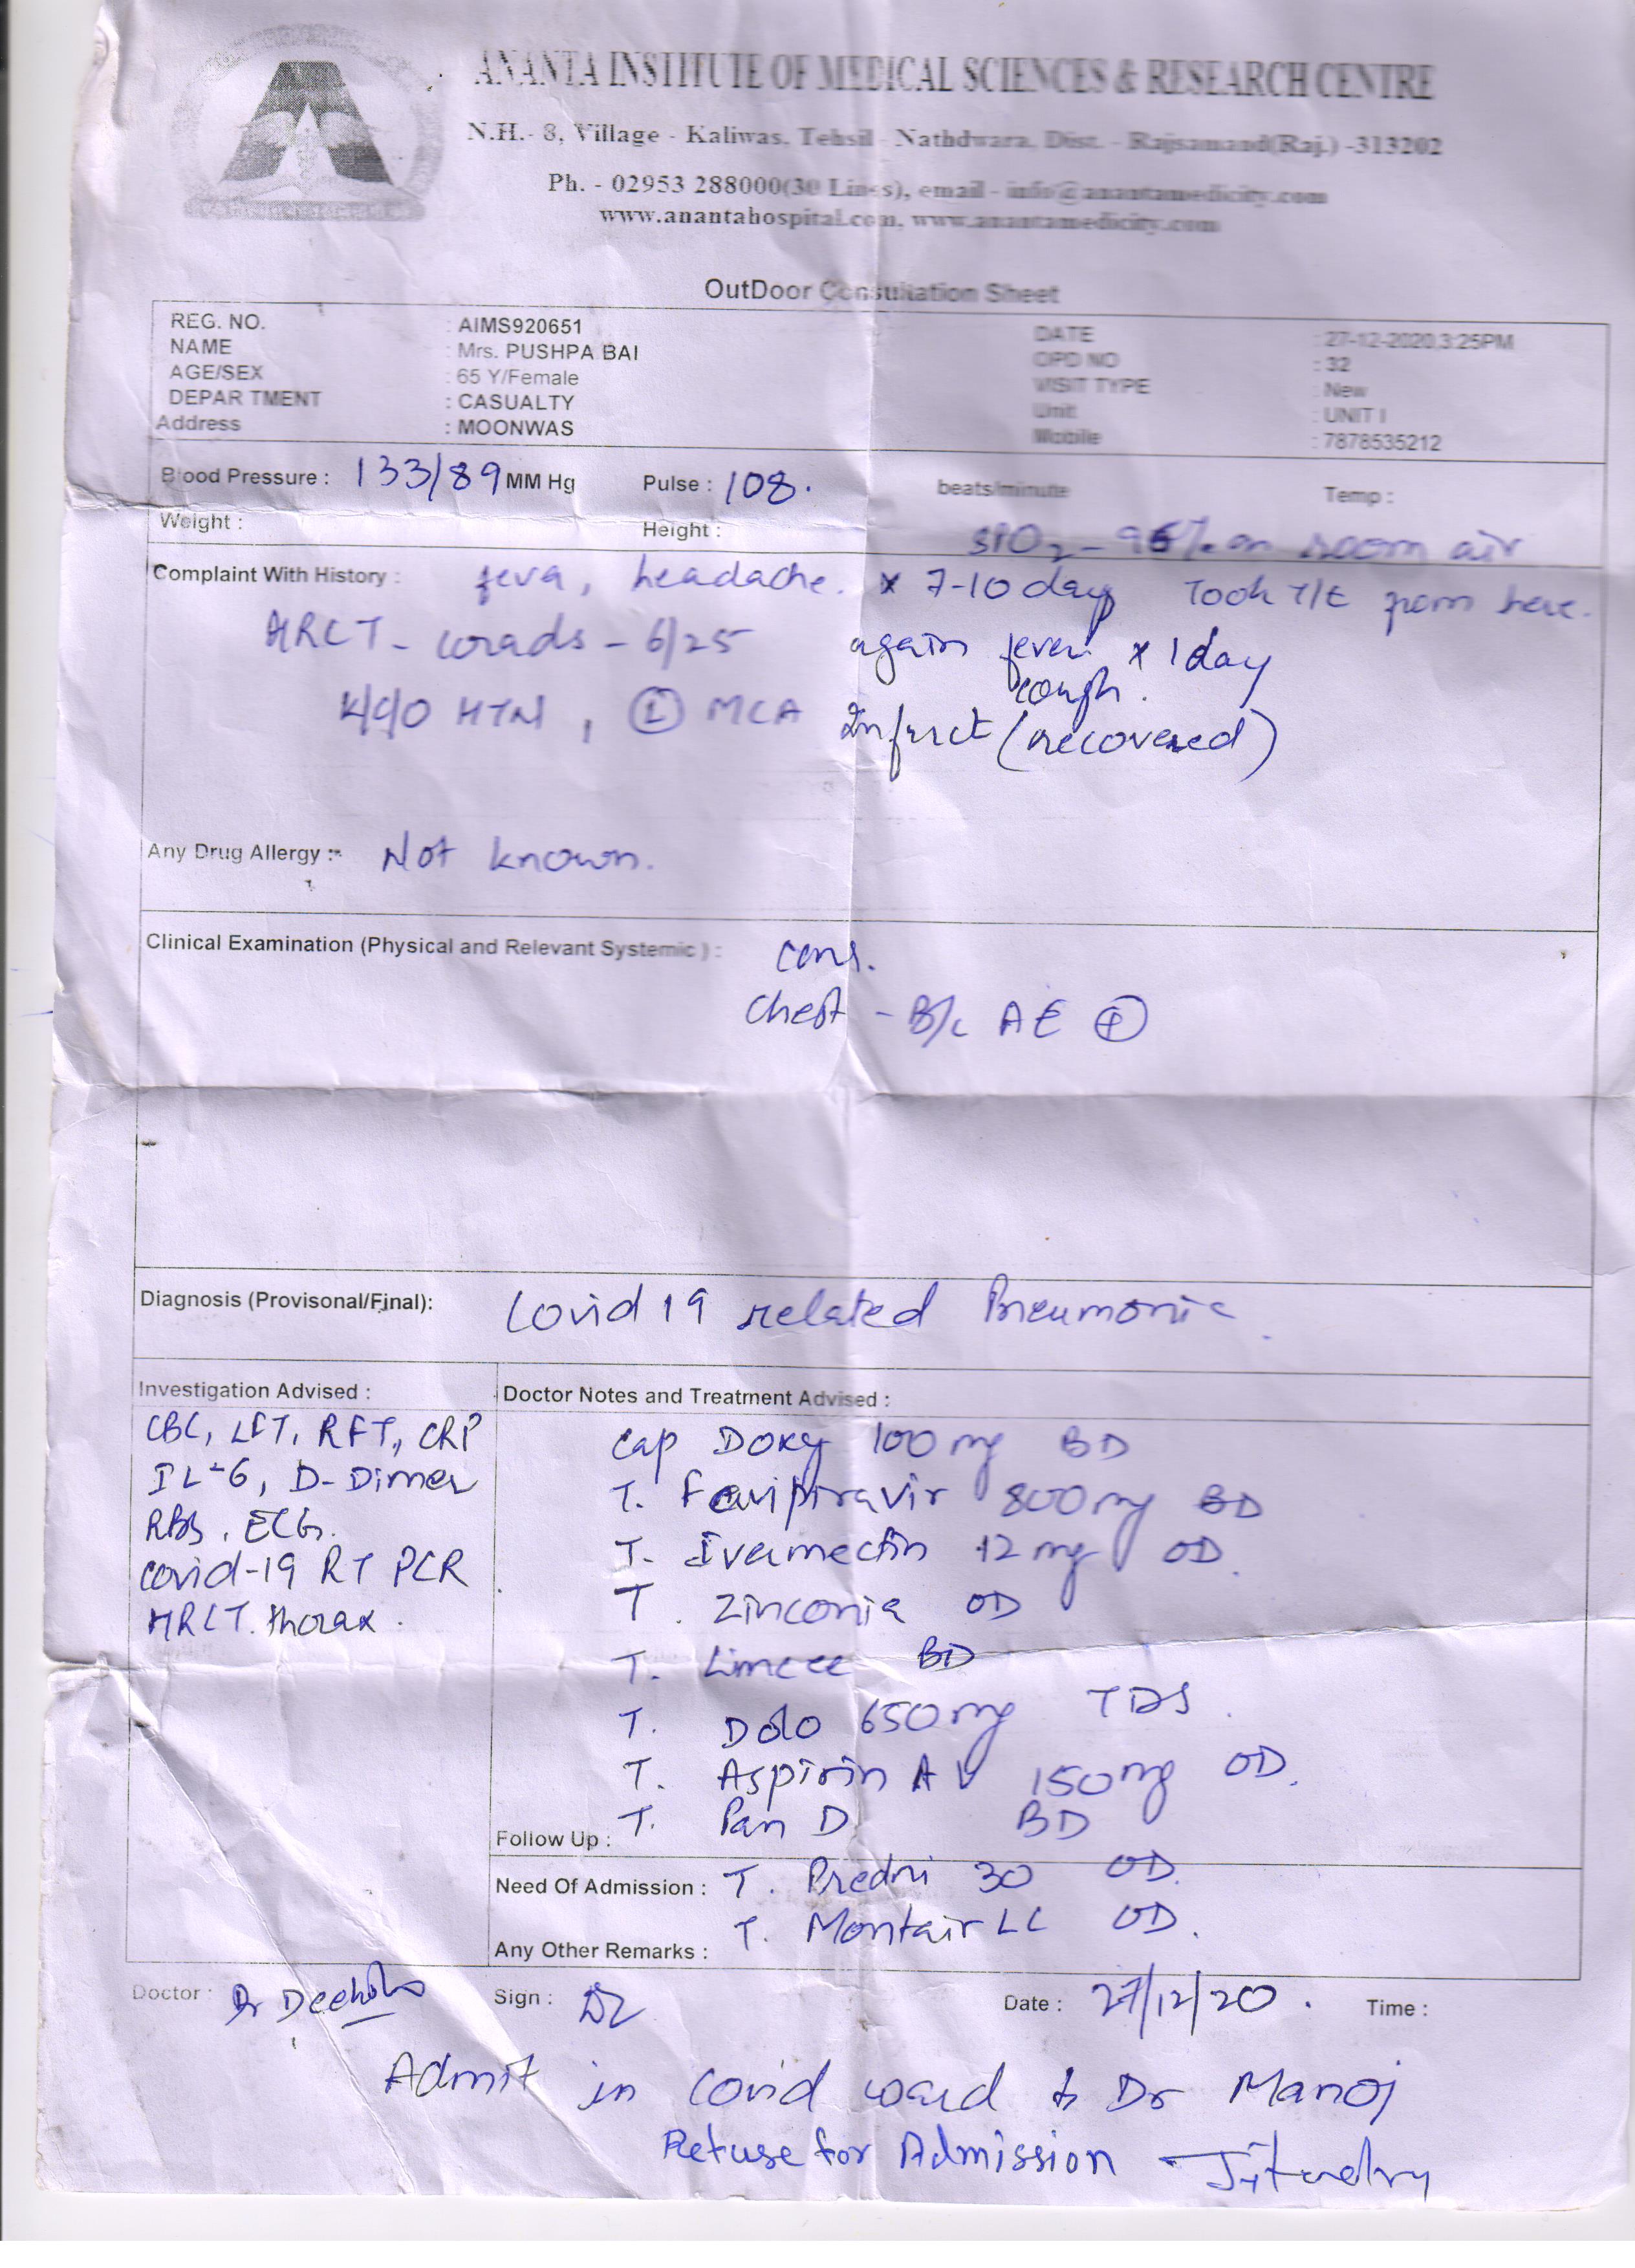 ANANTA INSTITUTE OF MEDICAL SCIENCES & RESEARCH CENTRE
N.H.- 8, Village - Kaliwas, Tehsil - Nathdwara, Dist. - Rajsamand(Raj.) -313202
Ph. - 02953 288000(30 Lines), email - info@anantamedicity.com
www.anantahospital.com, www.anantamedicity.com
OutDoor Consultation Sheet
REG. NO. : AIMS920651 DATE : 27-12-2020,3:25PM
NAME : Mrs. PUSHPA BAI OPD NO : 32
AGE/SEX : 65 Y/Female VISIT TYPE : New
DEPAR TMENT : CASUALTY Unit : UNIT I
Address : MOONWAS Mobile : 7878535212
Blood Pressure : 133/89 MM Hg Pulse : 108. beats/minute Temp :
Weight : Height : SPO2 - 96% on room air
Complaint With History : fever, headache. x 7-10 day Took T/t from here.
HRCT - corads - 6/25 again fever x 1 day
cough.
K/c/o HTN, (L) MCA Infarct (recovered)
Any Drug Allergy :- Not known.
Clinical Examination (Physical and Relevant Systemic ) : cons.
Chest - B/L AE (+)
Diagnosis (Provisonal/Final): Covid 19 related Pneumonia.
Investigation Advised : Doctor Notes and Treatment Advised :
CBC, LFT, RFT, CRP
IL-6, D-Dimer
RBS, ECG.
Covid-19 RT PCR
HRCT. thorax.
Cap Doxy 100 mg BD
T. Favipiravir 800 mg BD
T. Ivermectin 12 mg OD.
T. Zinconia OD
T. Limcee BD
T. Dolo 650 mg TDS.
T. Aspirin AV 150 mg OD.
T. Pan D BD
Follow Up :
Need Of Admission : T. Predni 30 OD.
T. Montair LC OD.
Any Other Remarks :
Doctor : Dr Sign : Date : 27/12/20. Time :
Admit in Covid ward Dr Manoj
Refuse for Admission